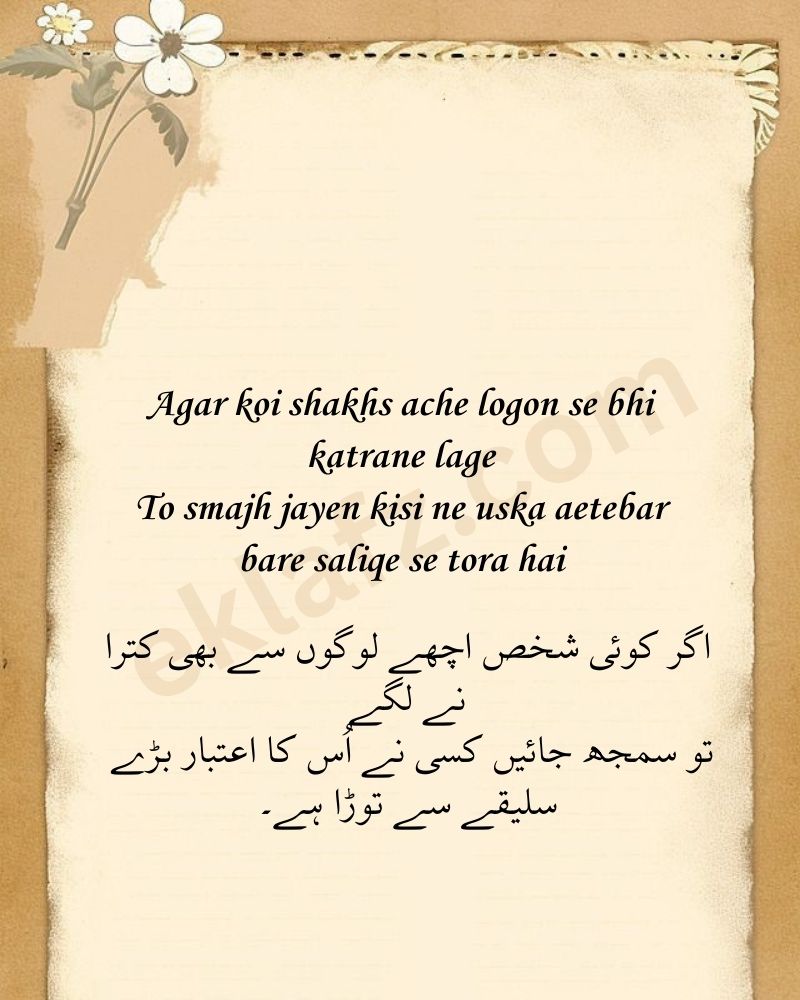 Agar koi shakhs ache logon se bhi
katrane lage
To smajh jayen kisi ne uska aetebar
bare saliqe se tora hai
eklafz.com
اگر کوئی شخص اچھے لوگوں سے بھی کترا
نے لگے
تو سمجھ جائیں کسی نے اُس کا اعتبار بڑے
سلیقے سے توڑا ہے۔